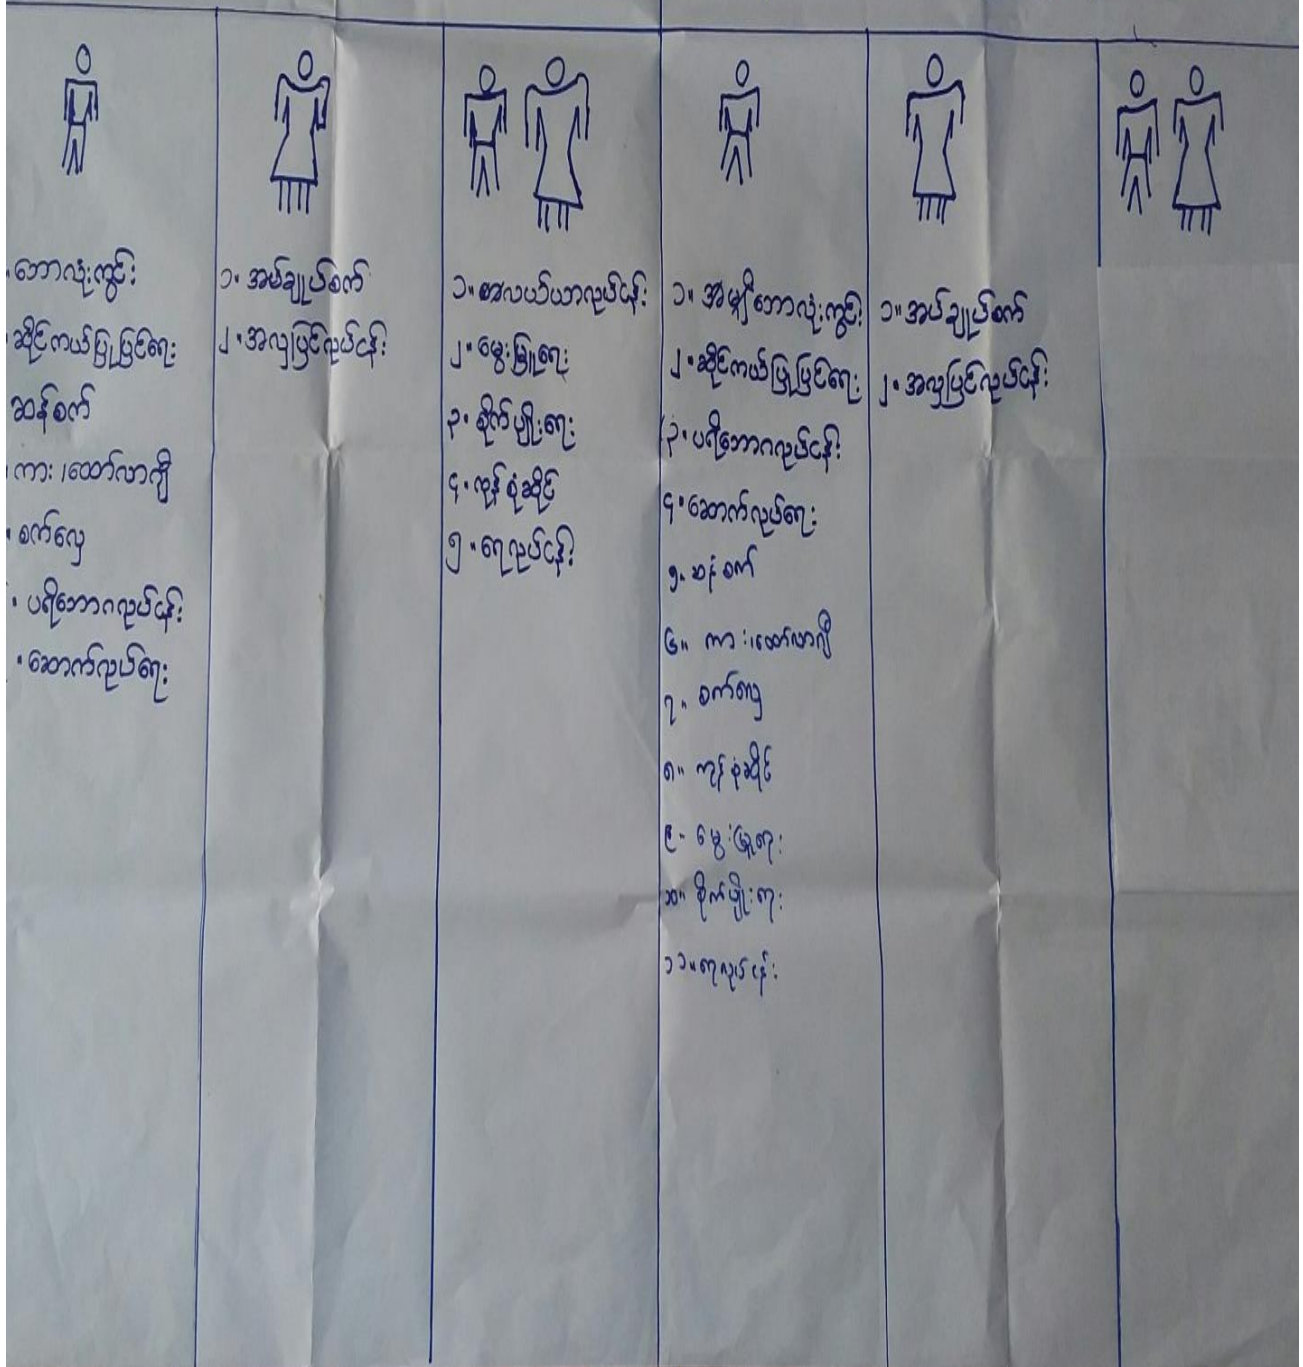 ဘောလုံးကွင်း
ဆိုင်ကယ်ပြုပြင်ရေး
ဆန်စက်
ကား ၊ထော်လာဂျီ
စက်လှေ
ပရိဘောဂလုပ်ငန်း
ဆောက်လုပ်ရေး
၁။ အပ်ချုပ်စက်
၂။ အလှပြင်လုပ်ငန်း
၁။ လယ်ယာလုပ်ငန်း
၂။ မွေးမြူရေး
၃။ စိုက်ပျိုးရေး
၄။ ကုန်စုံဆိုင်
၅။ ရေလုပ်ငန်း
၁။ အမျိုးဘောလုံးကွင်း
၂။ ဆိုင်ကယ်ပြုပြင်ရေး
၃။ ပရိဘောဂလုပ်ငန်း
၄။ ဆောက်လုပ်ရေး
၅။ ဆန်စက်
၆။ ကား ၊ထော်လာဂျီ
၇။ စက်လှေ
၈။ ကုန်စုံဆိုင်
၉။ မွေးမြူရေး
၁၀။ စိုက်ပျိုးရေး
၁၁။ ရေလုပ်ငန်း
၁။ အပ်ချုပ်စက်
၂။ အလှပြင်လုပ်ငန်း